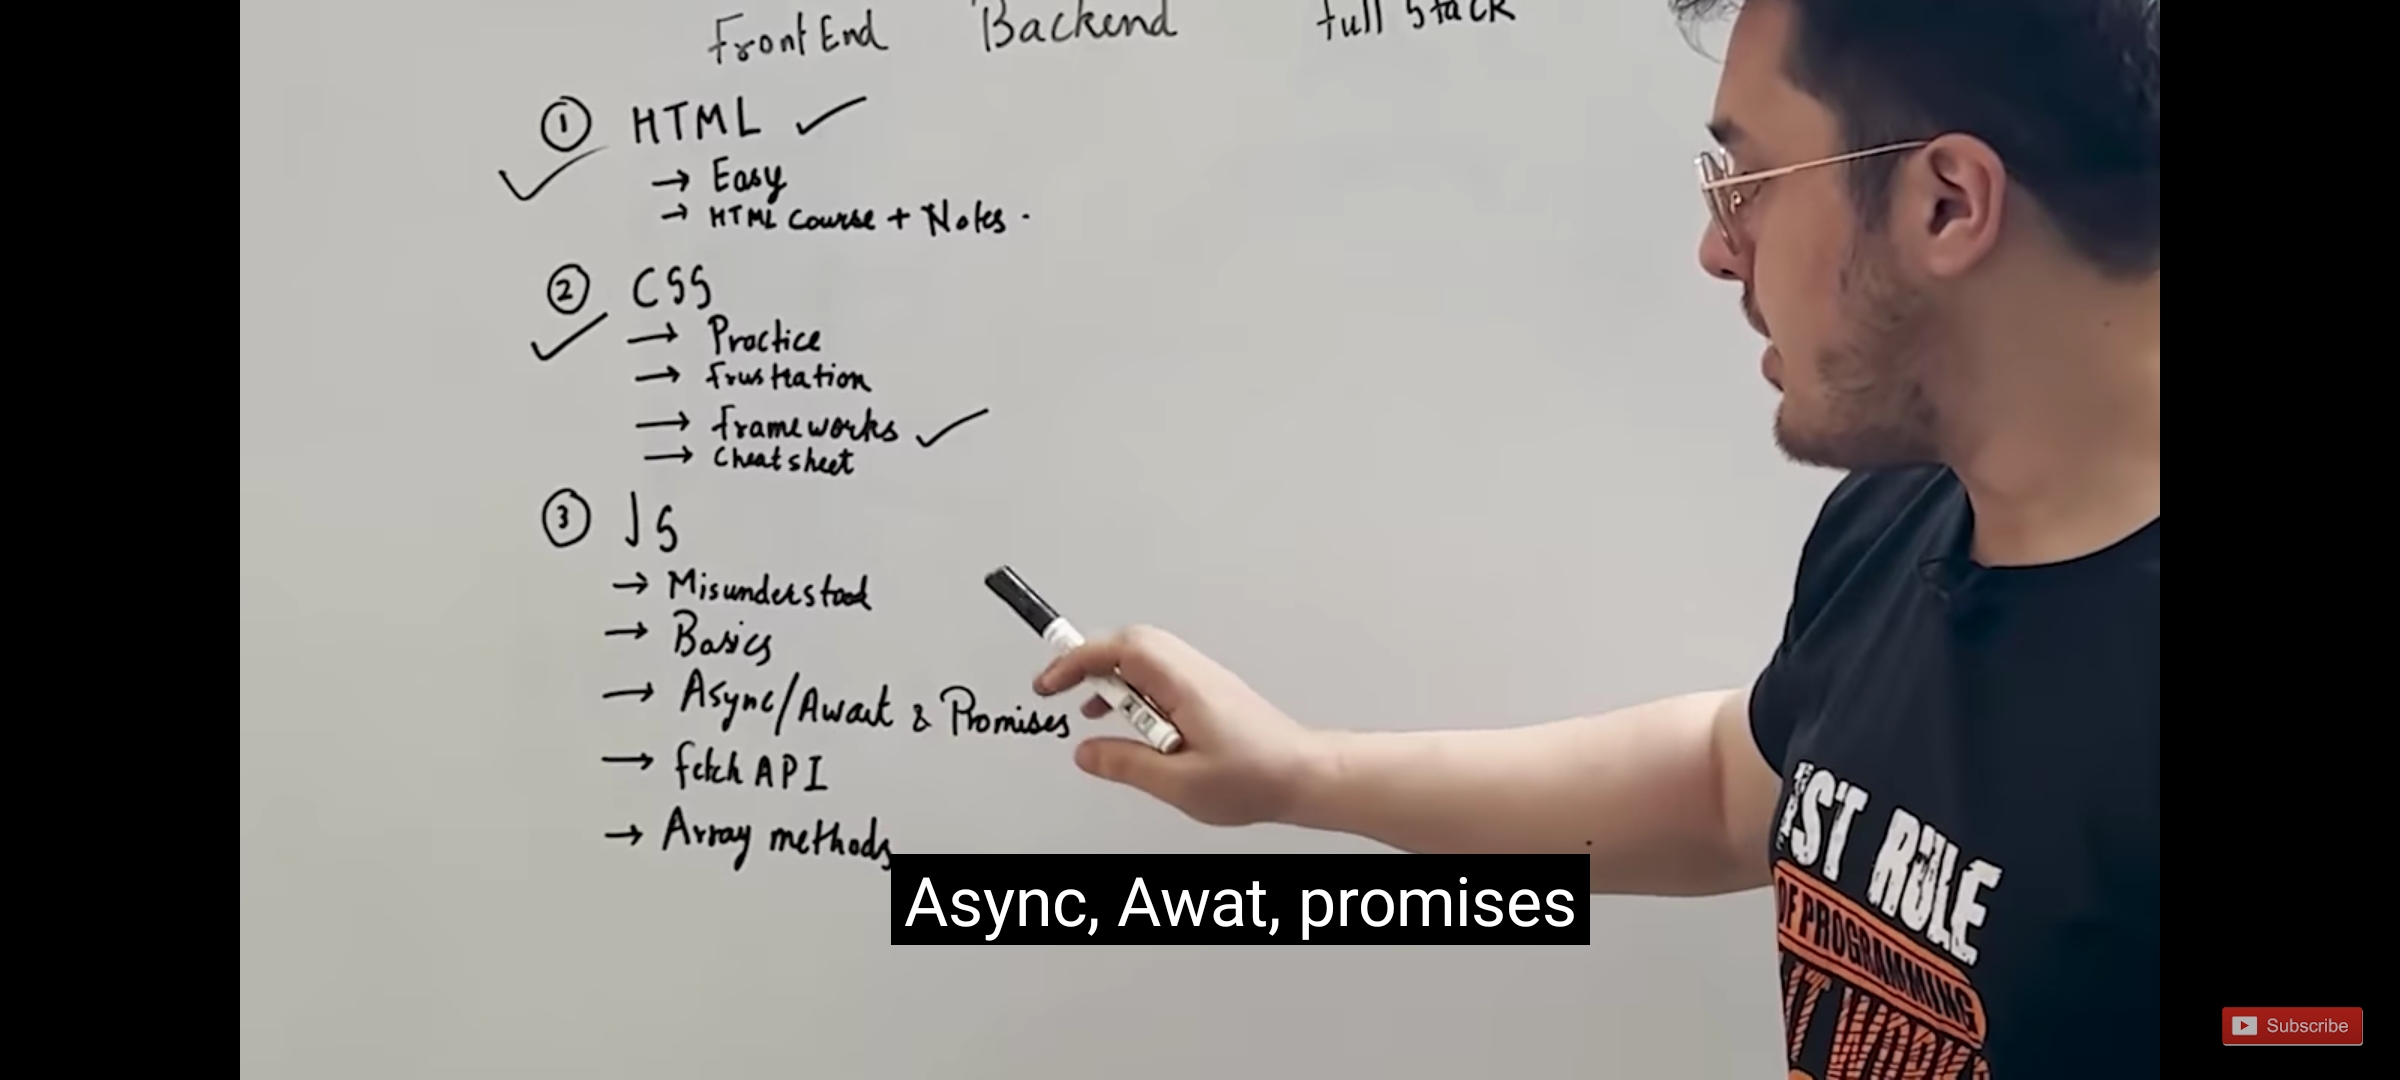 Front End Backend Full Stack
① HTML ✓
✓
→ Easy
→ HTML Course + Notes .
② CSS
✓ → Practice
→ frustration
→ frameworks ✓
→ Cheatsheet
③ JS
→ Misunderstood
→ Basics
→ Async/Await & Promises
→ fetch API
→ Array methods
Async, Awat, promises
RULE
OF PROGRAMMING
Subscribe